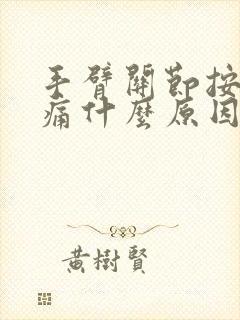 手臂關節按
痛什麼原因
黃樹賢